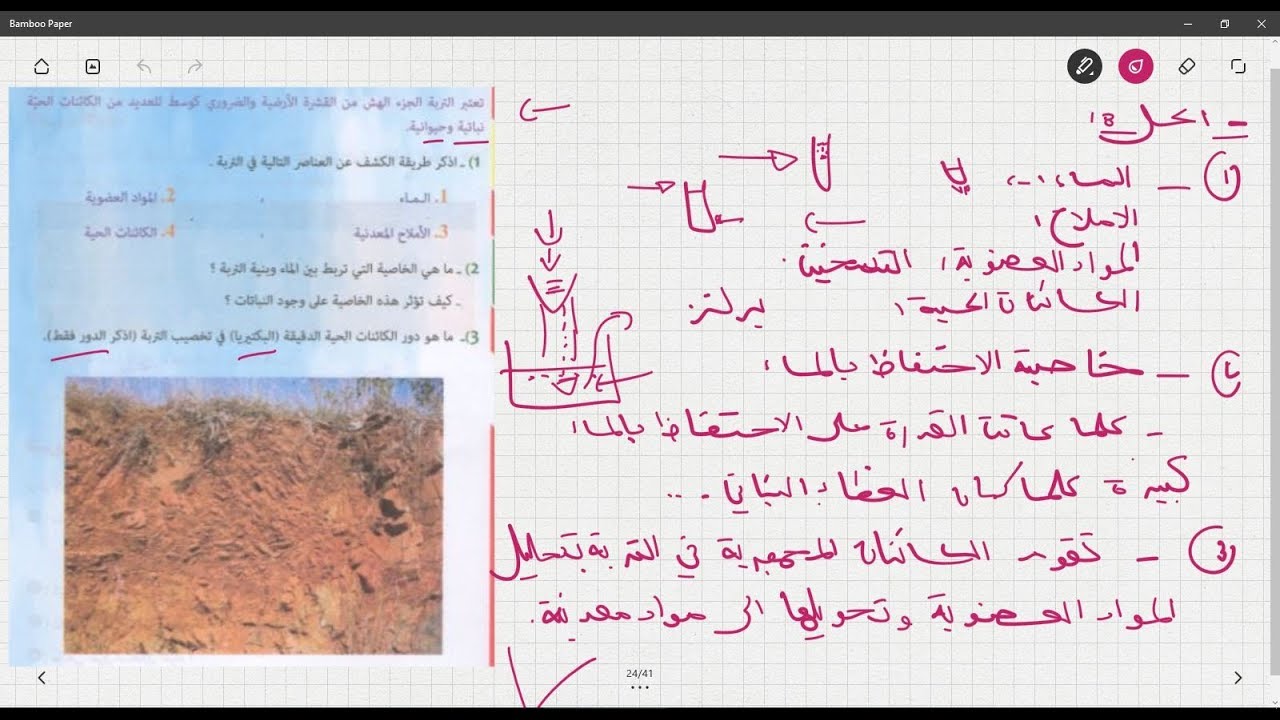 Bamboo Paper
تعتبر التربة الجزء الهش من القشرة الأرضية والضروري كوسط للعديد من الكائنات الحيّة
نباتية وحيوانية.
1) ـ اذكر طريقة الكشف عن العناصر التالية في التربة .
1. الـمـاء . 2. المواد العضوية
3. الأملاح المعدنية . 4. الكائنات الحية
2) ـ ما هي الخاصية التي تربط بين الماء وبنية التربة ؟
ـ كيف تؤثر هذه الخاصية على وجود النباتات ؟
3)ـ ما هو دور الكائنات الحية الدقيقة (البكتيريا) في تخصيب التربة (اذكر الدور فقط).
- الحل 18
1 - الماء:
الاملاح:
المواد العضوية: التسخين.
الكائنات الحية: برلز.
2 - خاصية الاحتفاظ بالماء:
- كلما كانت القدرة على الاحتفاظ بالماء
كبيرة كلما كان الغطاء النباتي ...
3 - تقوم الكائنات المجهرية في التربة بتحليل
المواد العضوية وتحويلها الى مواد معدنية.
24/41